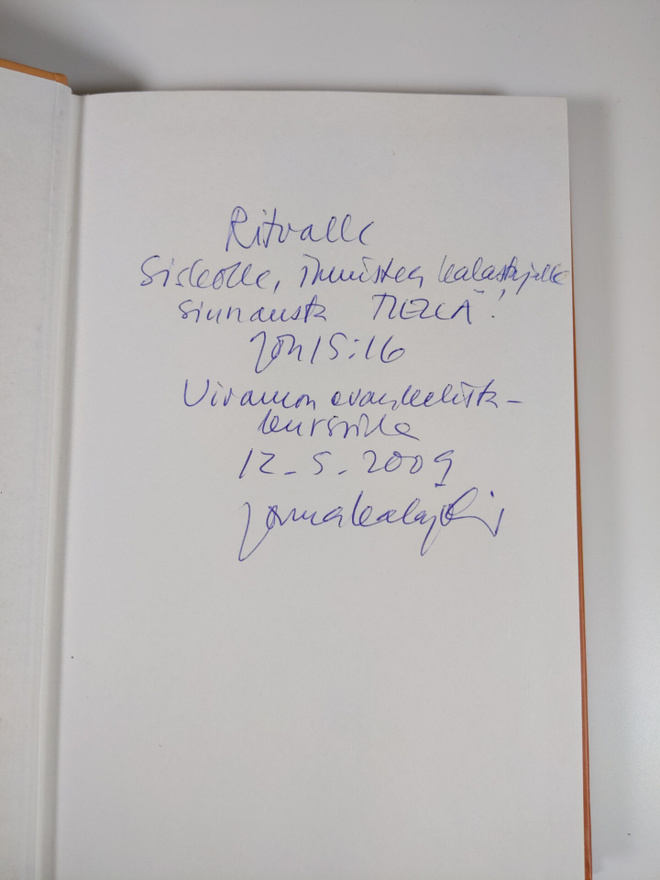 Ritvalle
Siskolle, ihmisten kalastajalle
siunausta TIELLÄ!
Joh 15:16
Uiramon evankelista-
kurssilla
12.5.2009
Jorma Kalajoki